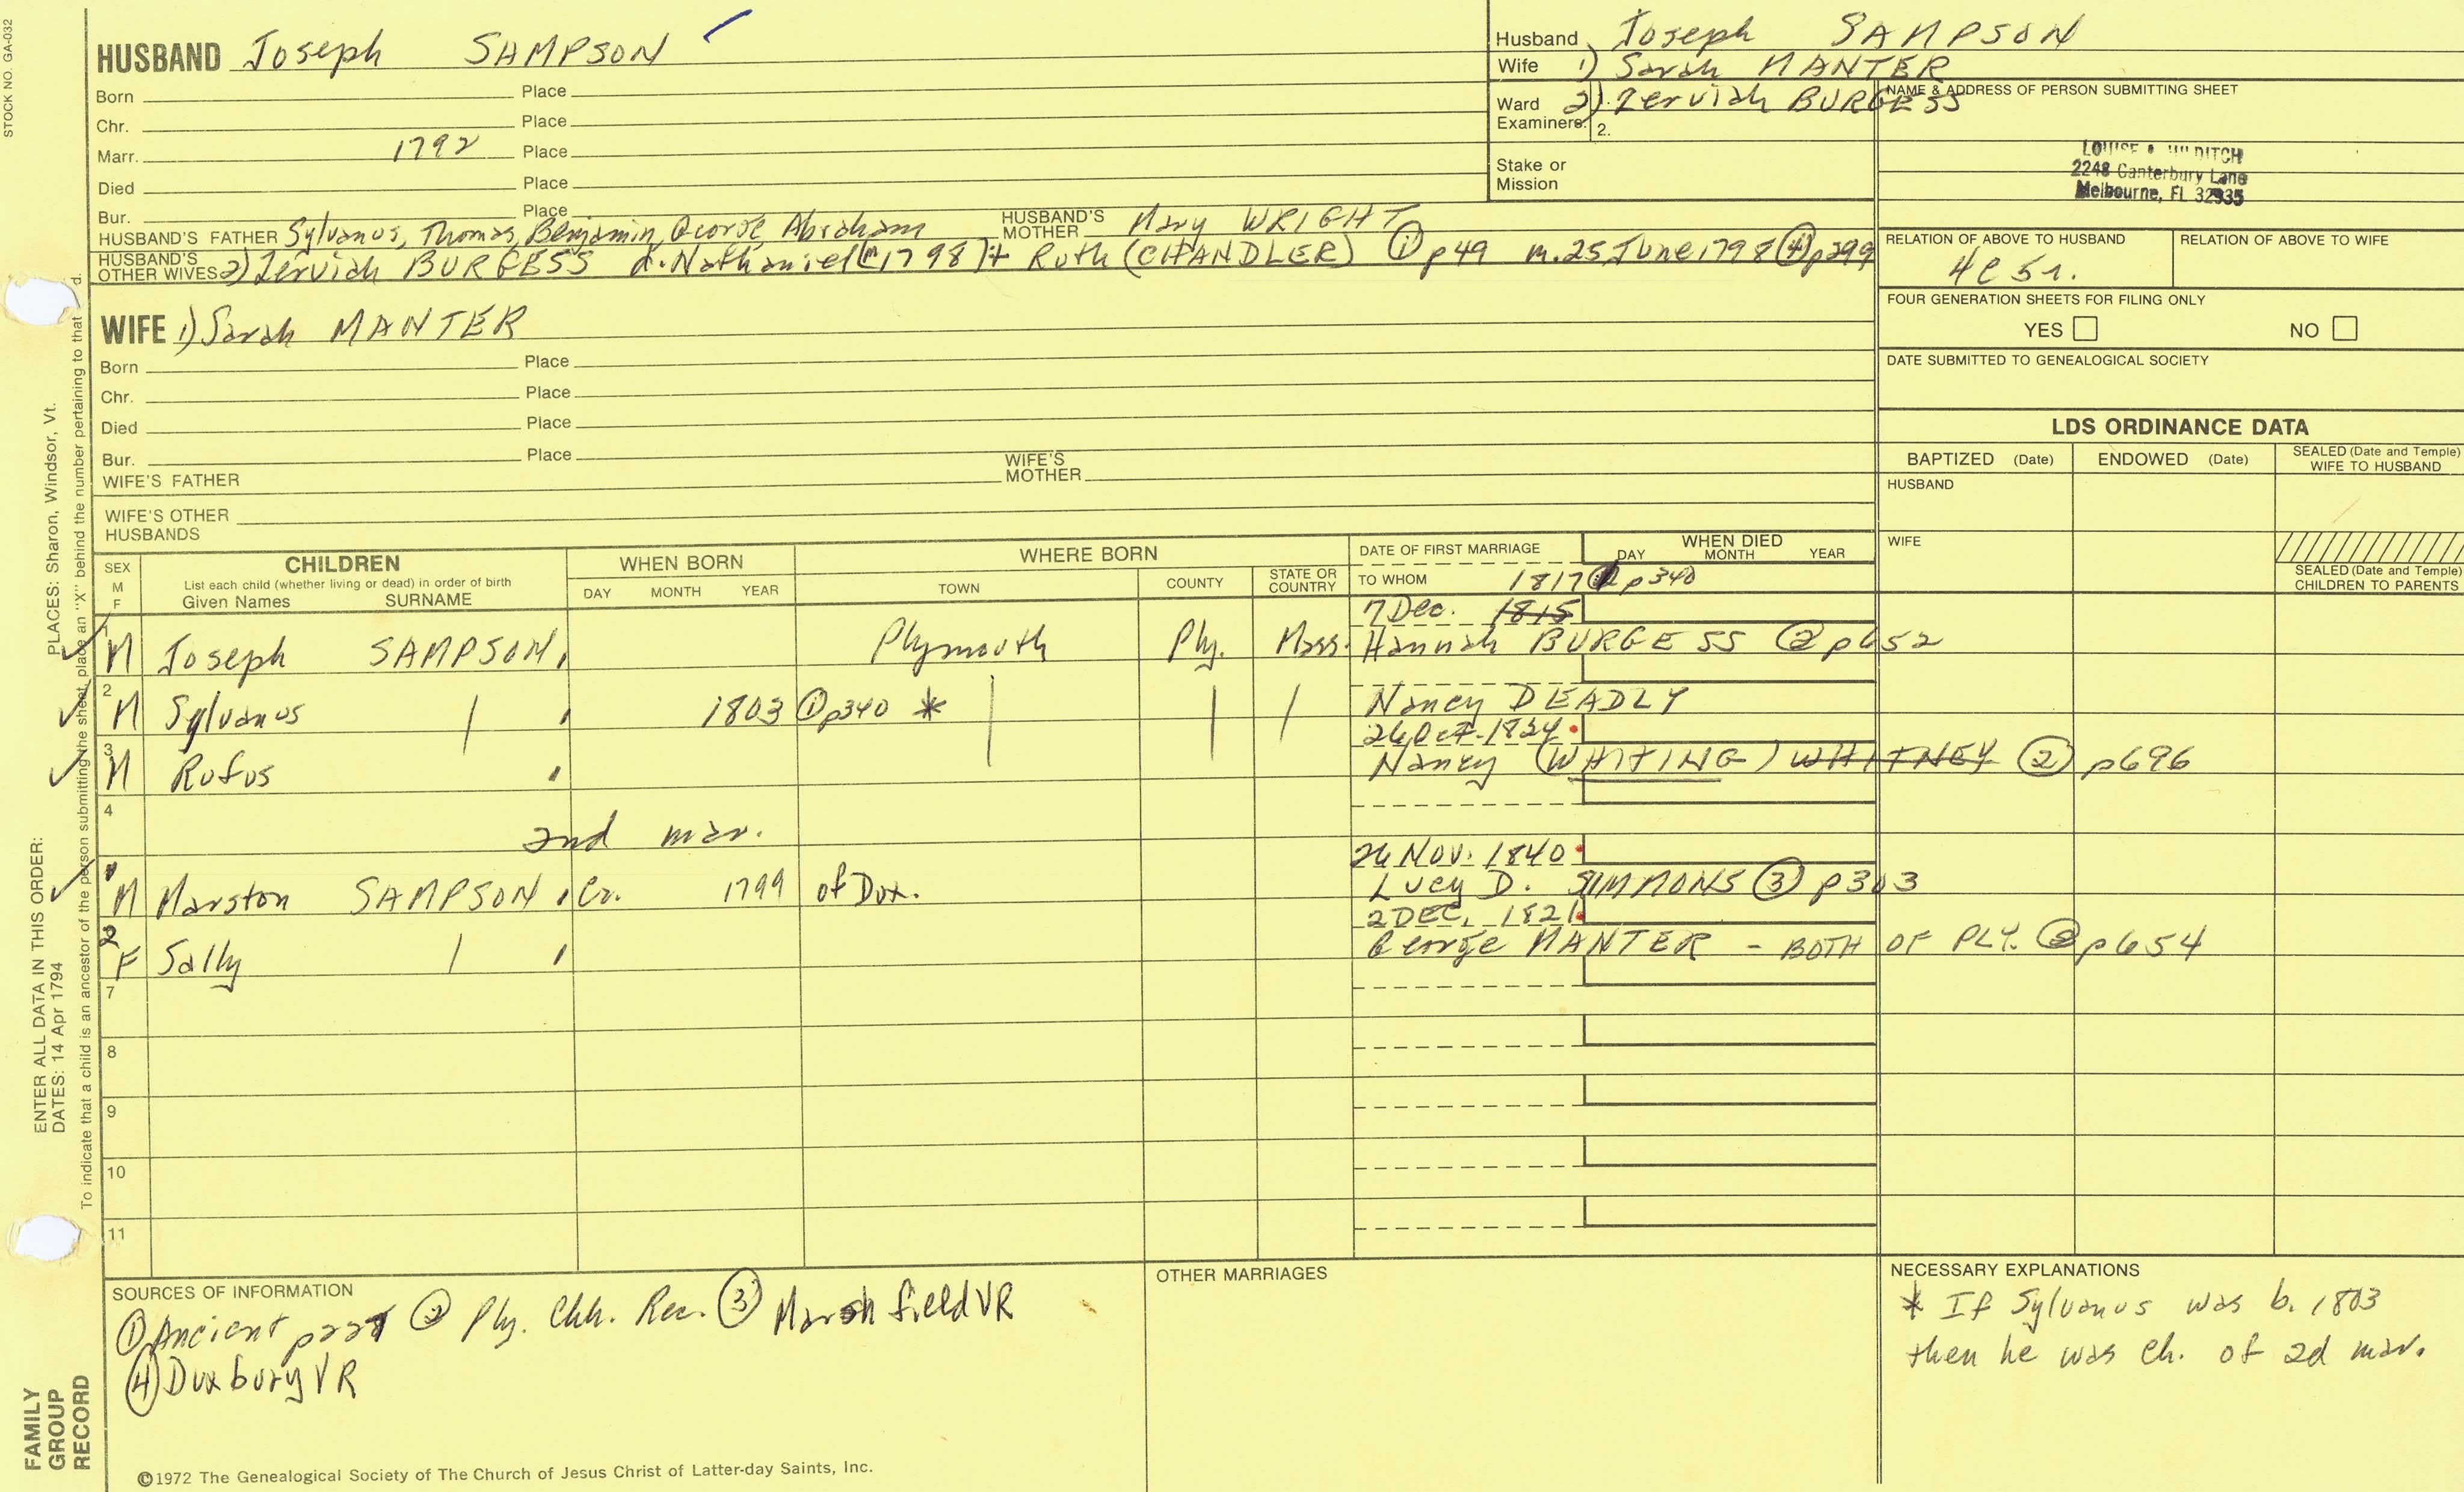 STOCK NO. GA-032
HUSBAND Joseph SAMPSON
Born Place
Chr. Place
Marr. 1792 Place
Died Place
Bur. Place
HUSBAND'S FATHER Sylvanus, Thomas, Benjamin, George, Abraham HUSBAND'S MOTHER Mary WRIGHT
HUSBAND'S OTHER WIVES 2) Zerviah BURGESS d. Nathaniel (1798)+ Ruth (CHANDLER) ① p49 m. 25 June 1798 ④ p299
Husband Joseph SAMPSON
Wife 1) Sarah MANTER
2) Zerviah BURGESS
Ward Examiners: 1.
2.
Stake or Mission
NAME & ADDRESS OF PERSON SUBMITTING SHEET
LOUISE HILDITCH
2248 Canterbury Lane
Melbourne, FL 32935
RELATION OF ABOVE TO HUSBAND RELATION OF ABOVE TO WIFE
4C5r.
FOUR GENERATION SHEETS FOR FILING ONLY
YES NO
DATE SUBMITTED TO GENEALOGICAL SOCIETY
WIFE 1) Sarah MANTER
Born Place
Chr. Place
Died Place
Bur. Place
WIFE'S FATHER WIFE'S MOTHER
WIFE'S OTHER HUSBANDS
LDS ORDINANCE DATA
BAPTIZED (Date) ENDOWED (Date) SEALED (Date and Temple) WIFE TO HUSBAND
HUSBAND
WIFE
SEALED (Date and Temple) CHILDREN TO PARENTS
SEX M F
CHILDREN
List each child (whether living or dead) in order of birth
Given Names SURNAME
WHEN BORN
DAY MONTH YEAR
WHERE BORN
TOWN COUNTY STATE OR COUNTRY
DATE OF FIRST MARRIAGE
TO WHOM
WHEN DIED
DAY MONTH YEAR
1817 p340
7 Dec. 1815
1 M Joseph SAMPSON Plymouth Ply. Mass. Hannah BURGESS ② p652
2 M Sylvanus 1803 ① p340 * Nancy DEADLY
26 Oct. 1824
3 M Rufus Nancy (WHITING) WHITNEY ② p696
4
2nd mar.
26 Nov. 1840
1 M Marston SAMPSON Co. 1799 of Dux. Lucy D. SIMMONS ③ p303
2 DEC. 1821
2 F Sally George MANTER - BOTH OF PLY. ② p654
7
8
9
10
11
SOURCES OF INFORMATION
① Ancient ② Ply. Chh. Rec. ③ Marshfield VR
④ Duxbury VR
OTHER MARRIAGES
NECESSARY EXPLANATIONS
* If Sylvanus was b. 1803
then he was ch. of 2d mar.
©1972 The Genealogical Society of The Church of Jesus Christ of Latter-day Saints, Inc.
FAMILY GROUP RECORD
ENTER ALL DATA IN THIS ORDER:
DATES: 14 Apr 1794
PLACES: Sharon, Windsor, Vt.
To indicate that a child is an ancestor of the person submitting the sheet, place an "X" behind the number pertaining to that d.